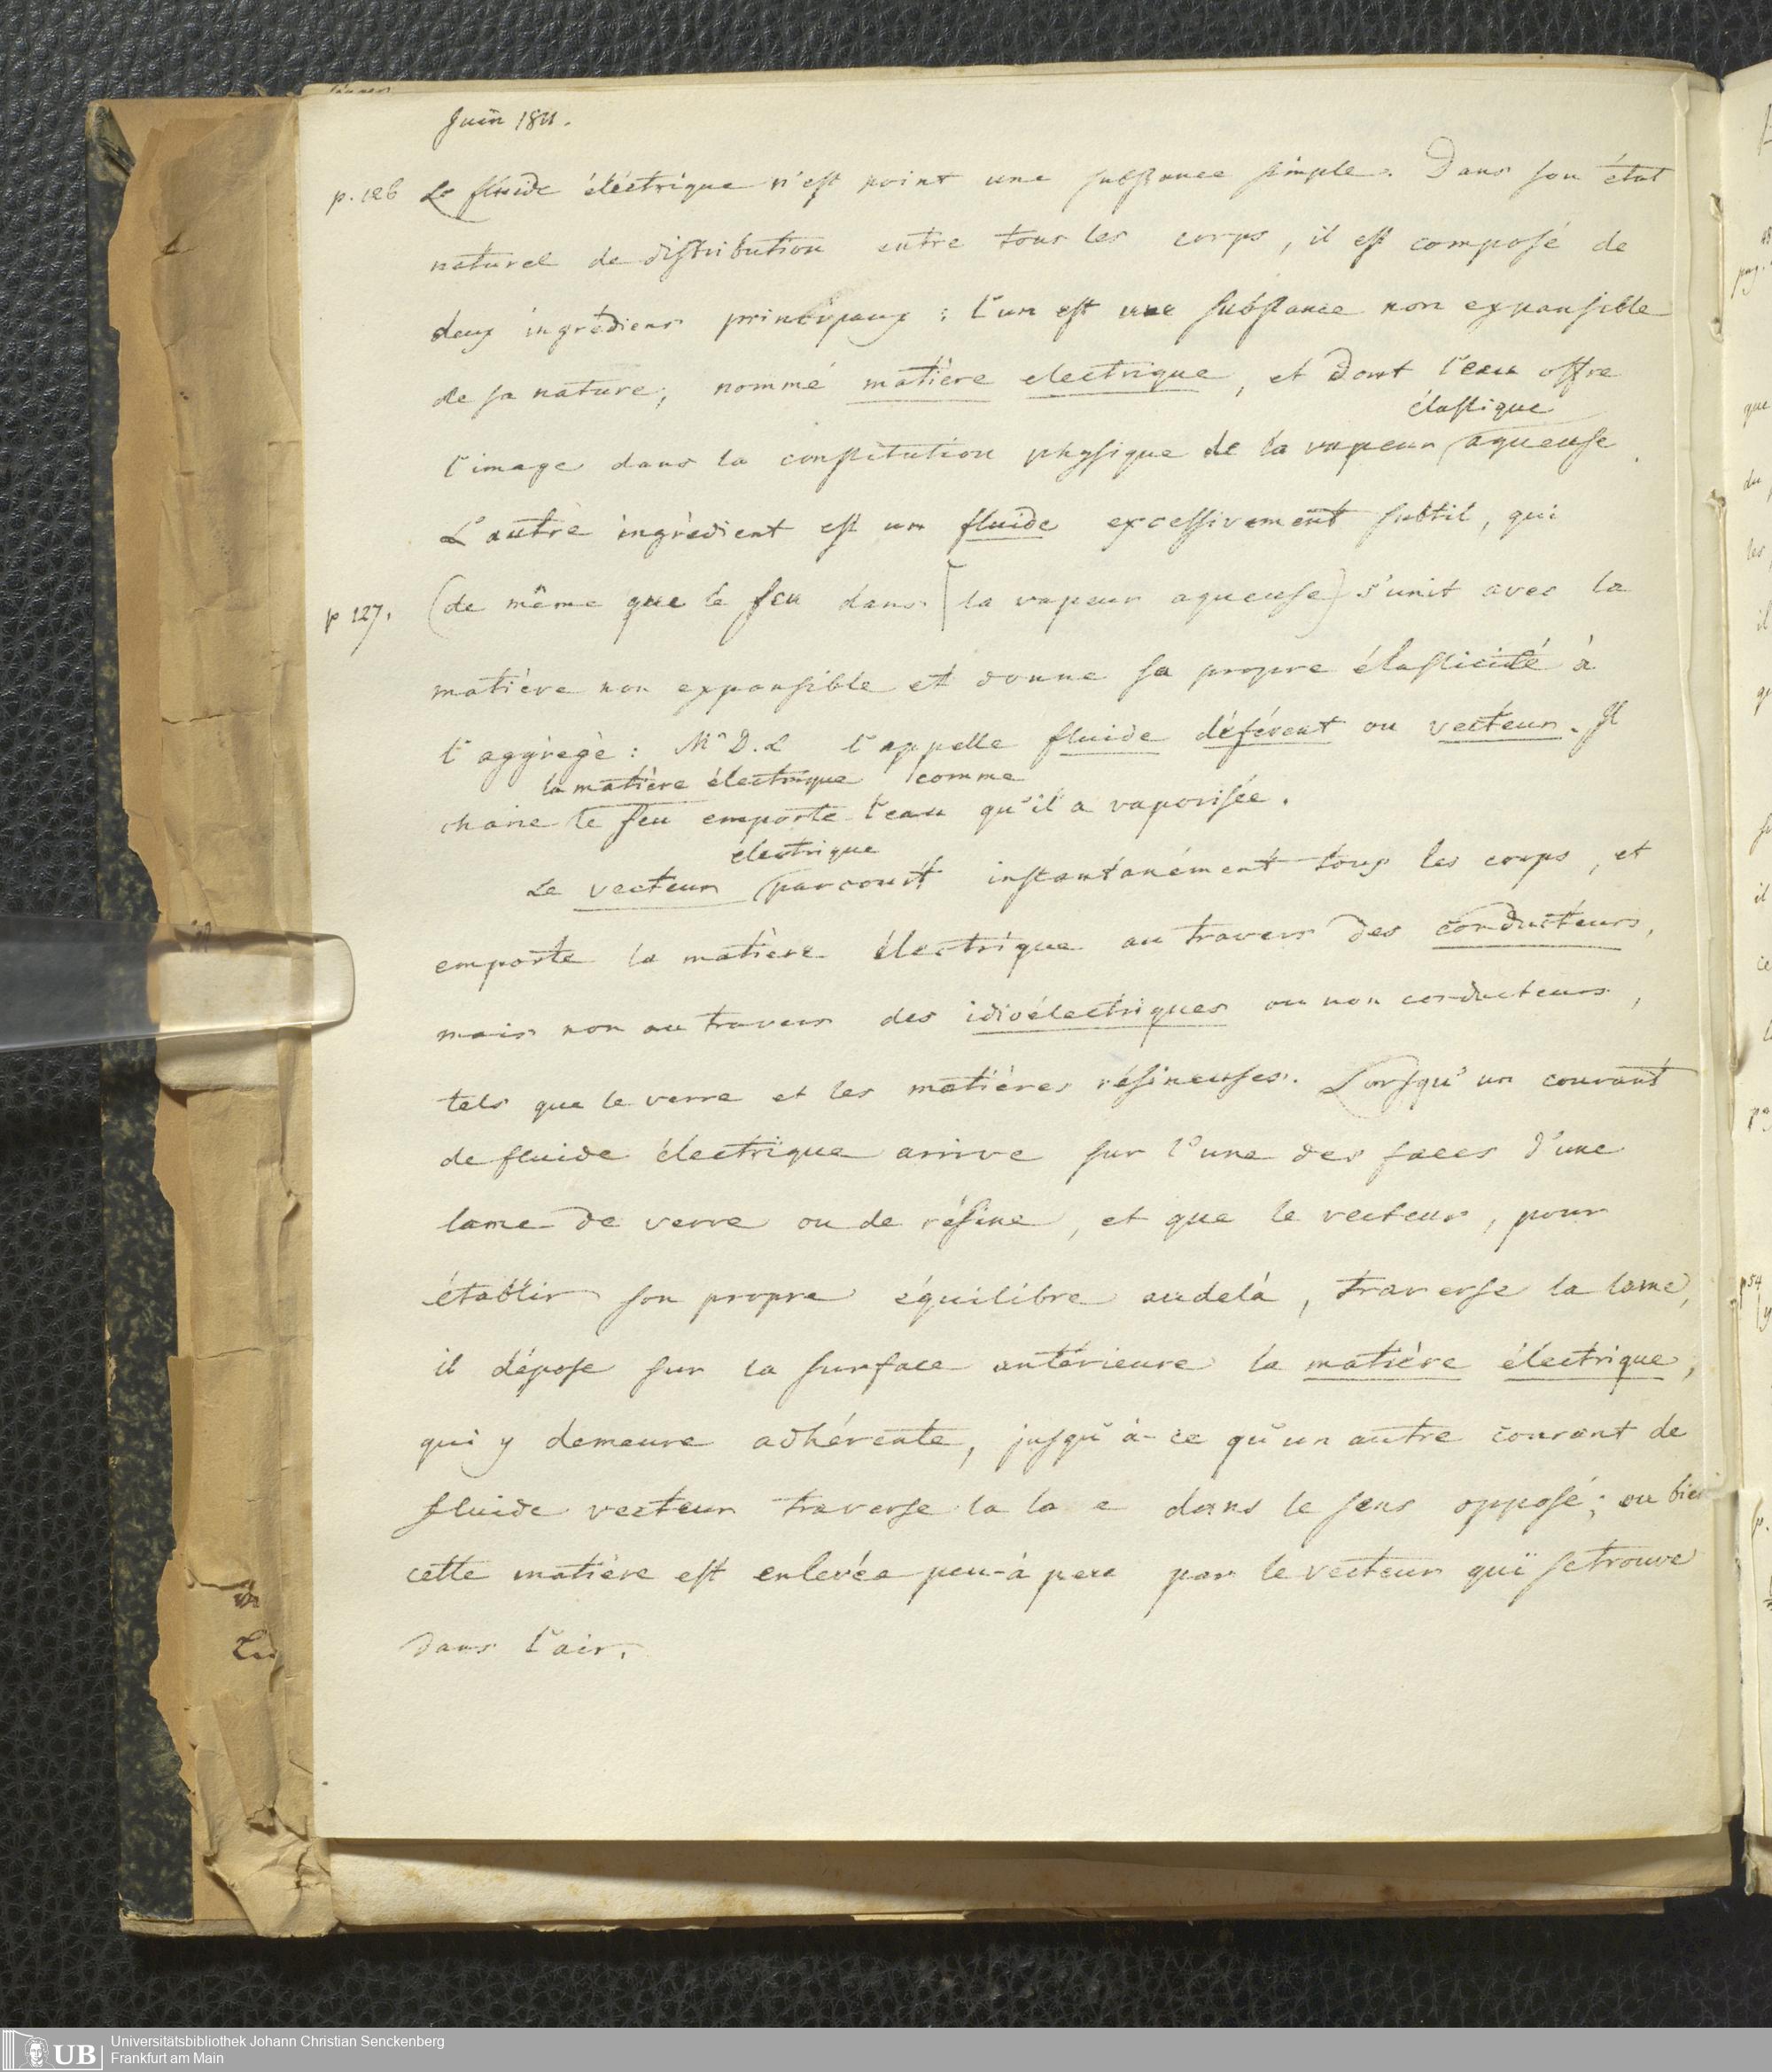 Juin 1811.
p. 126 Le fluide éléctrique n'est point une substance simple. Dans son état
naturel de distribution entre tous les corps, il est composé de
deux ingrédiens principaux : l'un est une substance non expansible
de sa nature, nommé matière electrique, et dont l'eau offre
élastique
l'image dans la constitution physique de la vapeur aqueuse.
L'autre ingrédient est un fluide excessivement subtil, qui
p 127. (de même que le feu dans [la vapeur aqueuse) s'unit avec la
matière non expansible et donne sa propre élasticité à
l'aggrégé : Mr D. L l'appelle fluide déférent ou vecteur. Il
la matière électrique comme
charie le feu emporte l'eau qu'il a vaporisée.
électrique
Le vecteur parcourt instantanément tous les corps, et
emporte la matière électrique au travers des conducteurs,
mais non au travers des idioélectriques ou non conducteurs,
tels que le verre et les matières résineuses. Lorsqu'un courant
de fluide électrique arrive sur l'une des faces d'une
lame de verre ou de résine, et que le vecteur, pour
établir son propre équilibre audelà, traverse la lame,
il dépose sur la surface antérieure la matière électrique,
qui y demeure adhérente, jusqu'à-ce qu'un autre courant de
fluide vecteur traverse la la e dans le sens opposé; ou bien
cette matière est enlevée peu-à peu par le vecteur qui se trouve
dans l'air.
Universitätsbibliothek Johann Christian Senckenberg
UB Frankfurt am Main